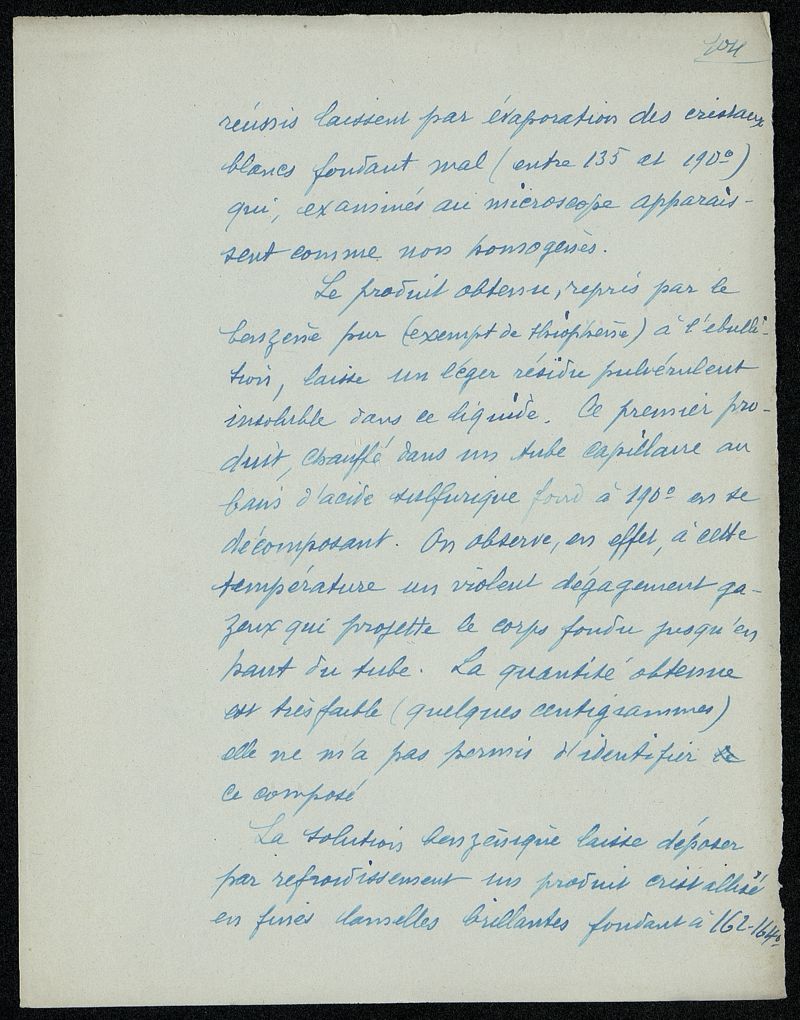 104
réunis laissent par évaporation des cristaux
blancs fondant mal (entre 135 et 190°)
qui, examinés au microscope apparais-
sent comme non homogènes.
Le produit obtenu, repris par le
benzène pur (exempt de thiophène) à l'ébulli-
tion, laisse un léger résidu pulvérulent
insoluble dans ce liquide. Ce premier pro-
duit, chauffé dans un tube capillaire au
bain d'acide sulfurique fond à 190° en se
décomposant. On observe, en effet, à cette
température un violent dégagement ga-
zeux qui projette le corps fondu jusqu'en
haut du tube. La quantité obtenue
est très faible (quelques centigrammes)
elle ne m'a pas permis d'identifier
ce composé
La solution benzénique laisse déposer
par refroidissement un produit cristallisé
en fines lamelles brillantes fondant à 162-164°